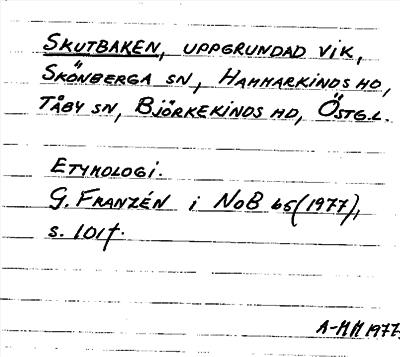 SKUTBAKEN, UPPGRUNDAD VIK,
SKÖNBERGA SN, HAMMARKINDS HD,
TÅBY SN, BJÖRKEKINDS HD, ÖSTG.L.
ETYMOLOGI.
G. FRANZÉN i NoB 65 (1977),
s. 101f.
A-MM 1977.